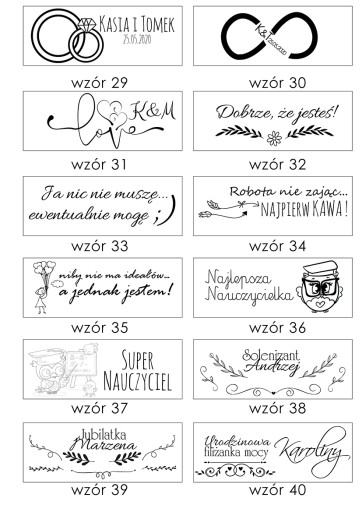 KASIA I TOMEK
25.05.2020
wzór 29
wzór 30
love K&M
wzór 31
Dobrze, że jesteś!
wzór 32
Ja nic nie muszę...
ewentualnie mogę ;)
wzór 33
Robota nie zając...
NAJPIERW KAWA!
wzór 34
niby nie ma ideałów...
a jednak jestem!
wzór 35
Najlepsza
Nauczycielka
wzór 36
SUPER
NAUCZYCIEL
wzór 37
Solenizant
Andrzej
wzór 38
Jubilatka
Marzena
wzór 39
Urodzinowa
filiżanka mocy
Karoliny
wzór 40